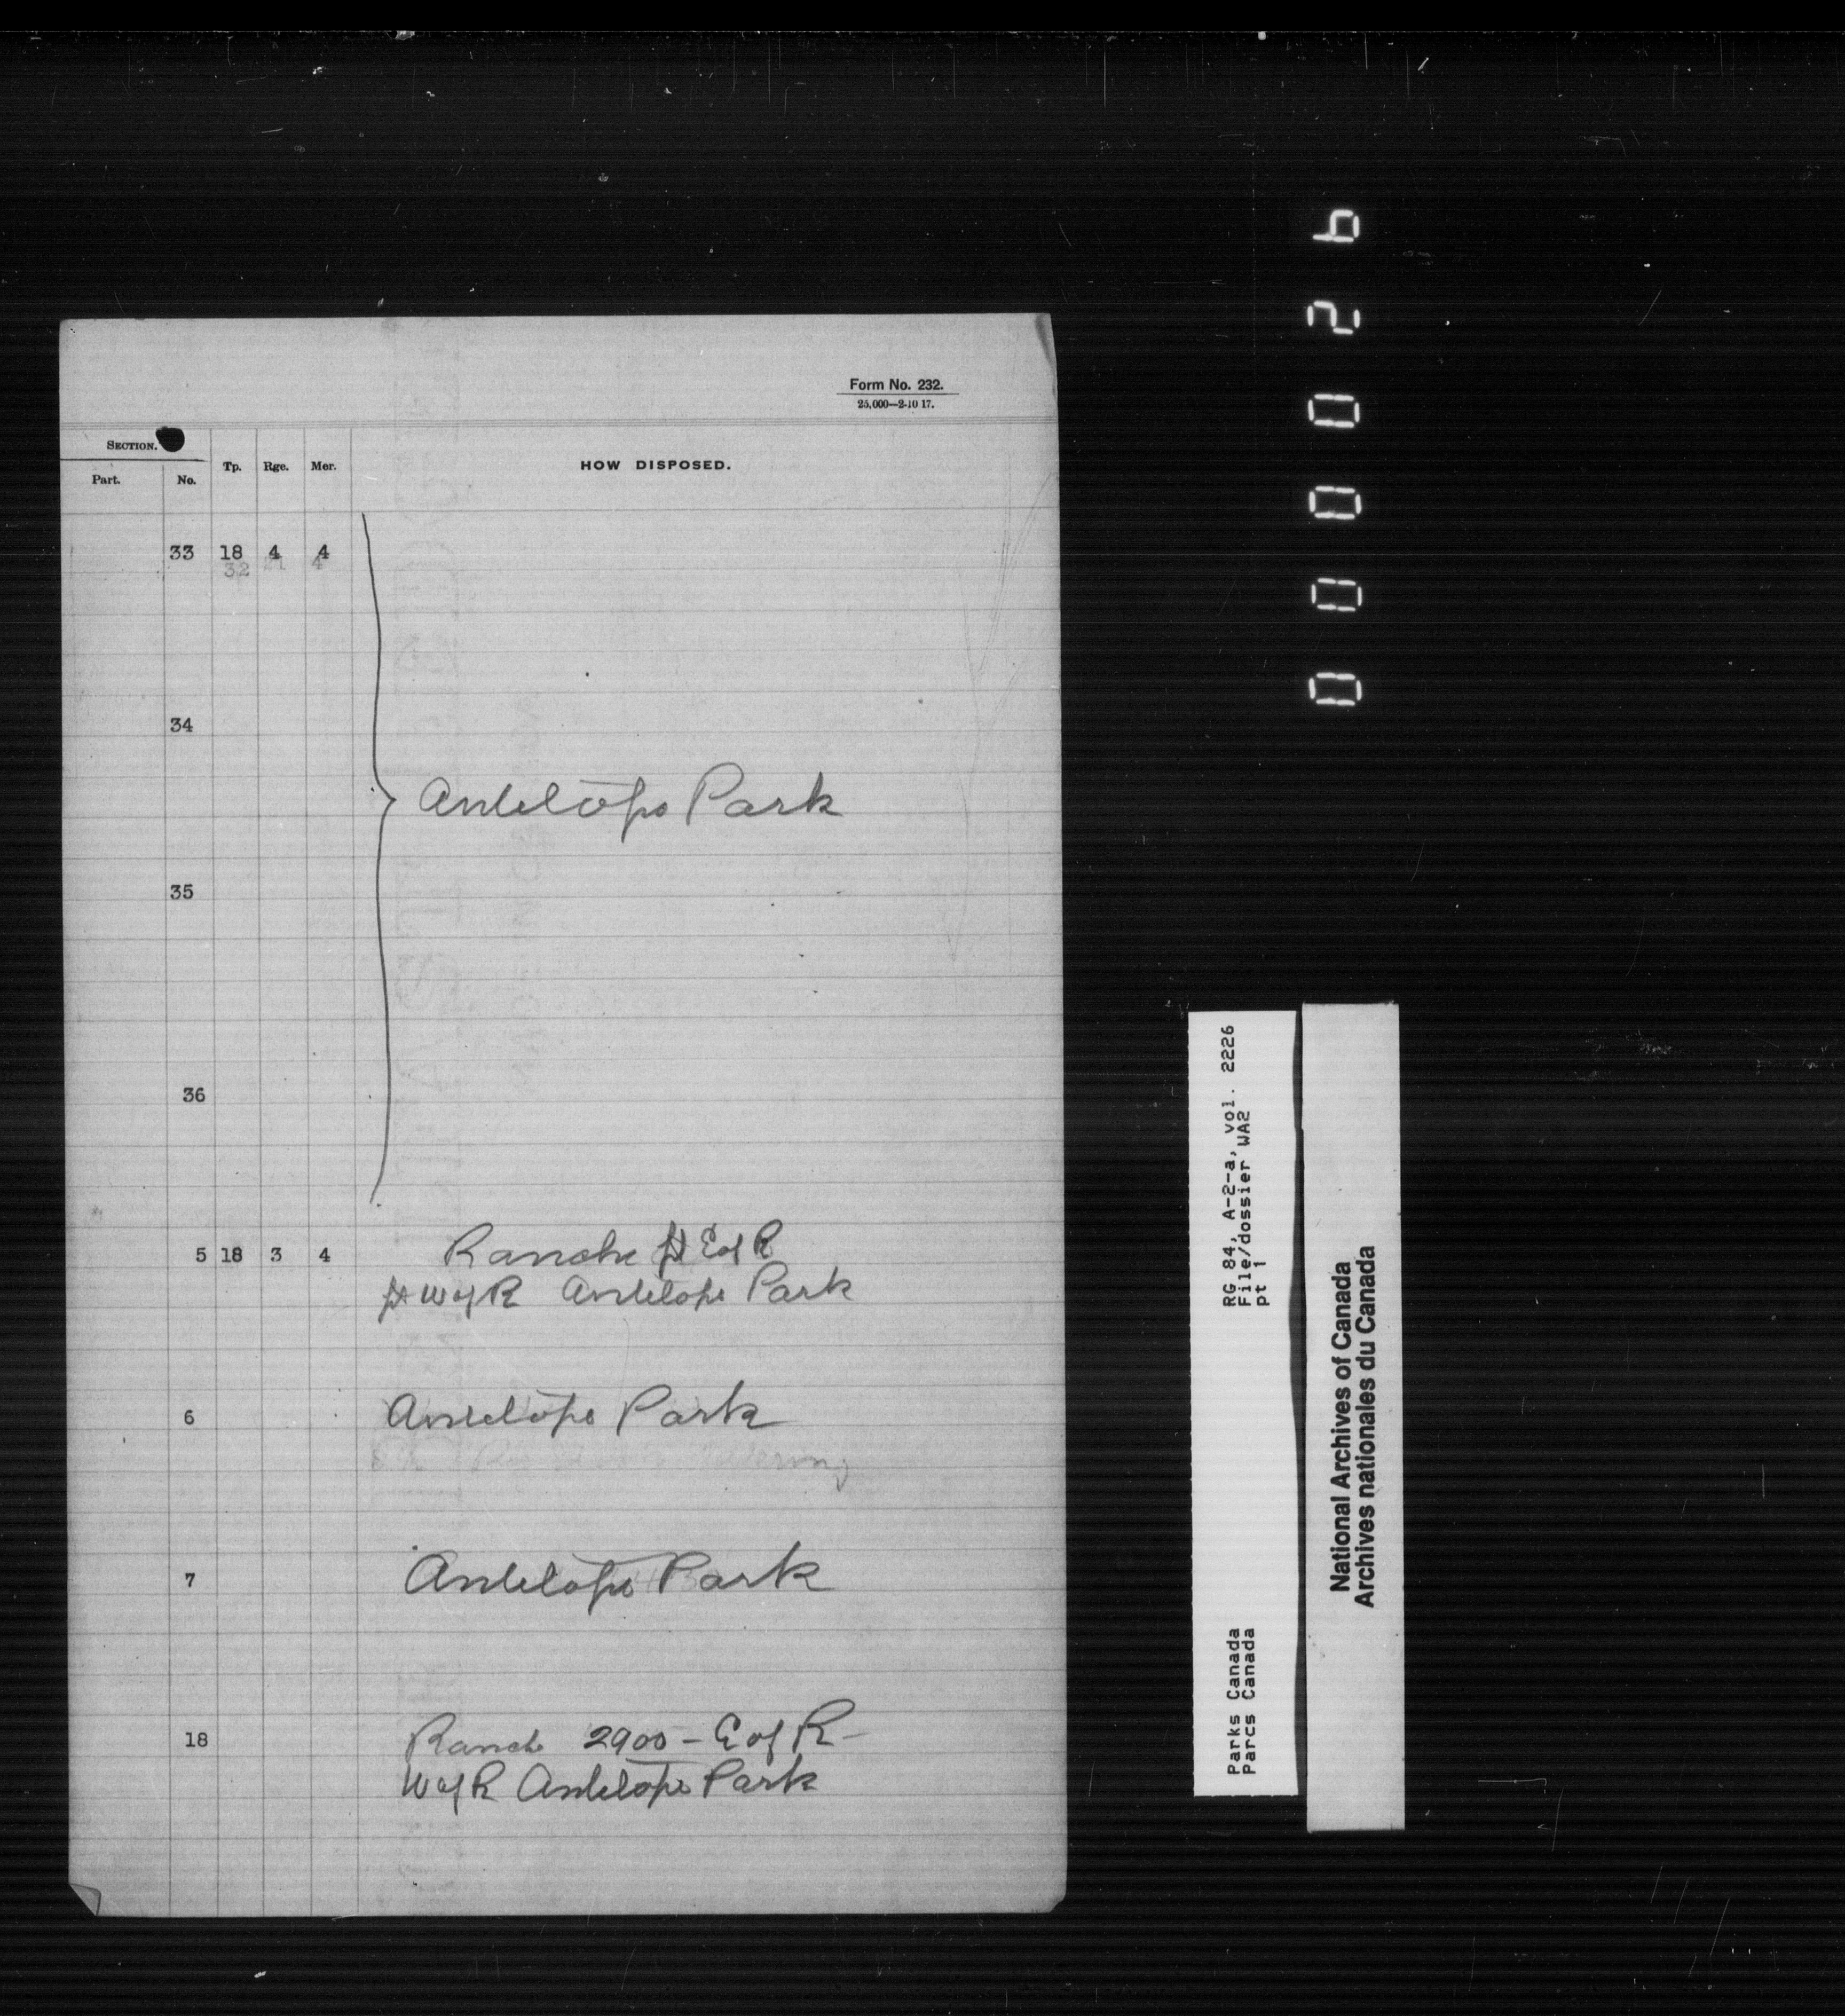 Form No. 232.
25,000—2-10 17.
SECTION.
Part. No. Tp. Rge. Mer. HOW DISPOSED.
33 18 4 4
32 21 4
34
Antelope Park
35
36
5 18 3 4 Ranche pt E of R
pt W of R Antelope Park
6 Antelope Park
7 Antelope Park
18 Ranch 2900 - E of R -
W of R Antelope Park
000026
RG 84, A-2-a, vol. 2226
File/dossier WA2
pt 1
Parks Canada
Parcs Canada
National Archives of Canada
Archives nationales du Canada